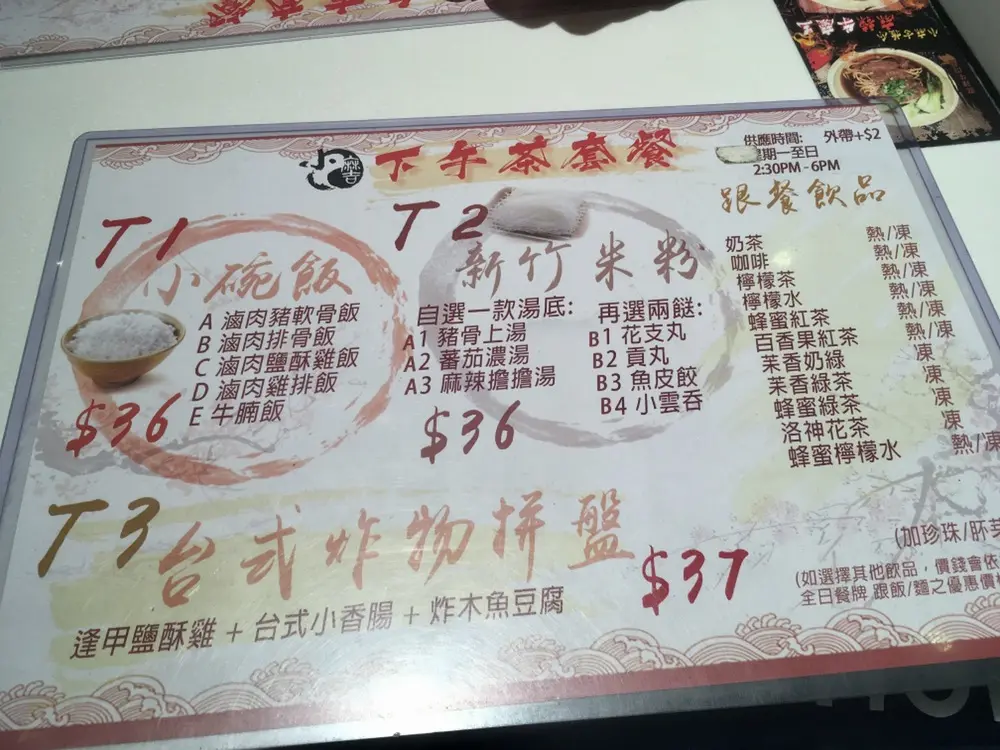 小麻吉
下午茶套餐
供應時間: 外帶+$2
星期一至日
2:30PM - 6PM
T1
小碗飯
A 滷肉豬軟骨飯
B 滷肉排骨飯
C 滷肉鹽酥雞飯
D 滷肉雞排飯
E 牛腩飯
$36
T2
新竹米粉
自選一款湯底:
A1 豬骨上湯
A2 蕃茄濃湯
A3 麻辣擔擔湯
再選兩餸:
B1 花支丸
B2 貢丸
B3 魚皮餃
B4 小雲吞
$36
跟餐飲品
奶茶 熱/凍
咖啡 熱/凍
檸檬茶 熱/凍
檸檬水 熱/凍
蜂蜜紅茶 熱/凍
百香果紅茶 凍
茉香奶綠 凍
茉香綠茶 凍
蜂蜜綠茶 凍
洛神花茶 凍
蜂蜜檸檬水 熱/凍
(加珍珠/
(如選擇其他飲品，價錢會依
全日餐牌 跟飯/麵之優惠價
T3
台式炸物拼盤
$37
逢甲鹽酥雞 + 台式小香腸 + 炸木魚豆腐